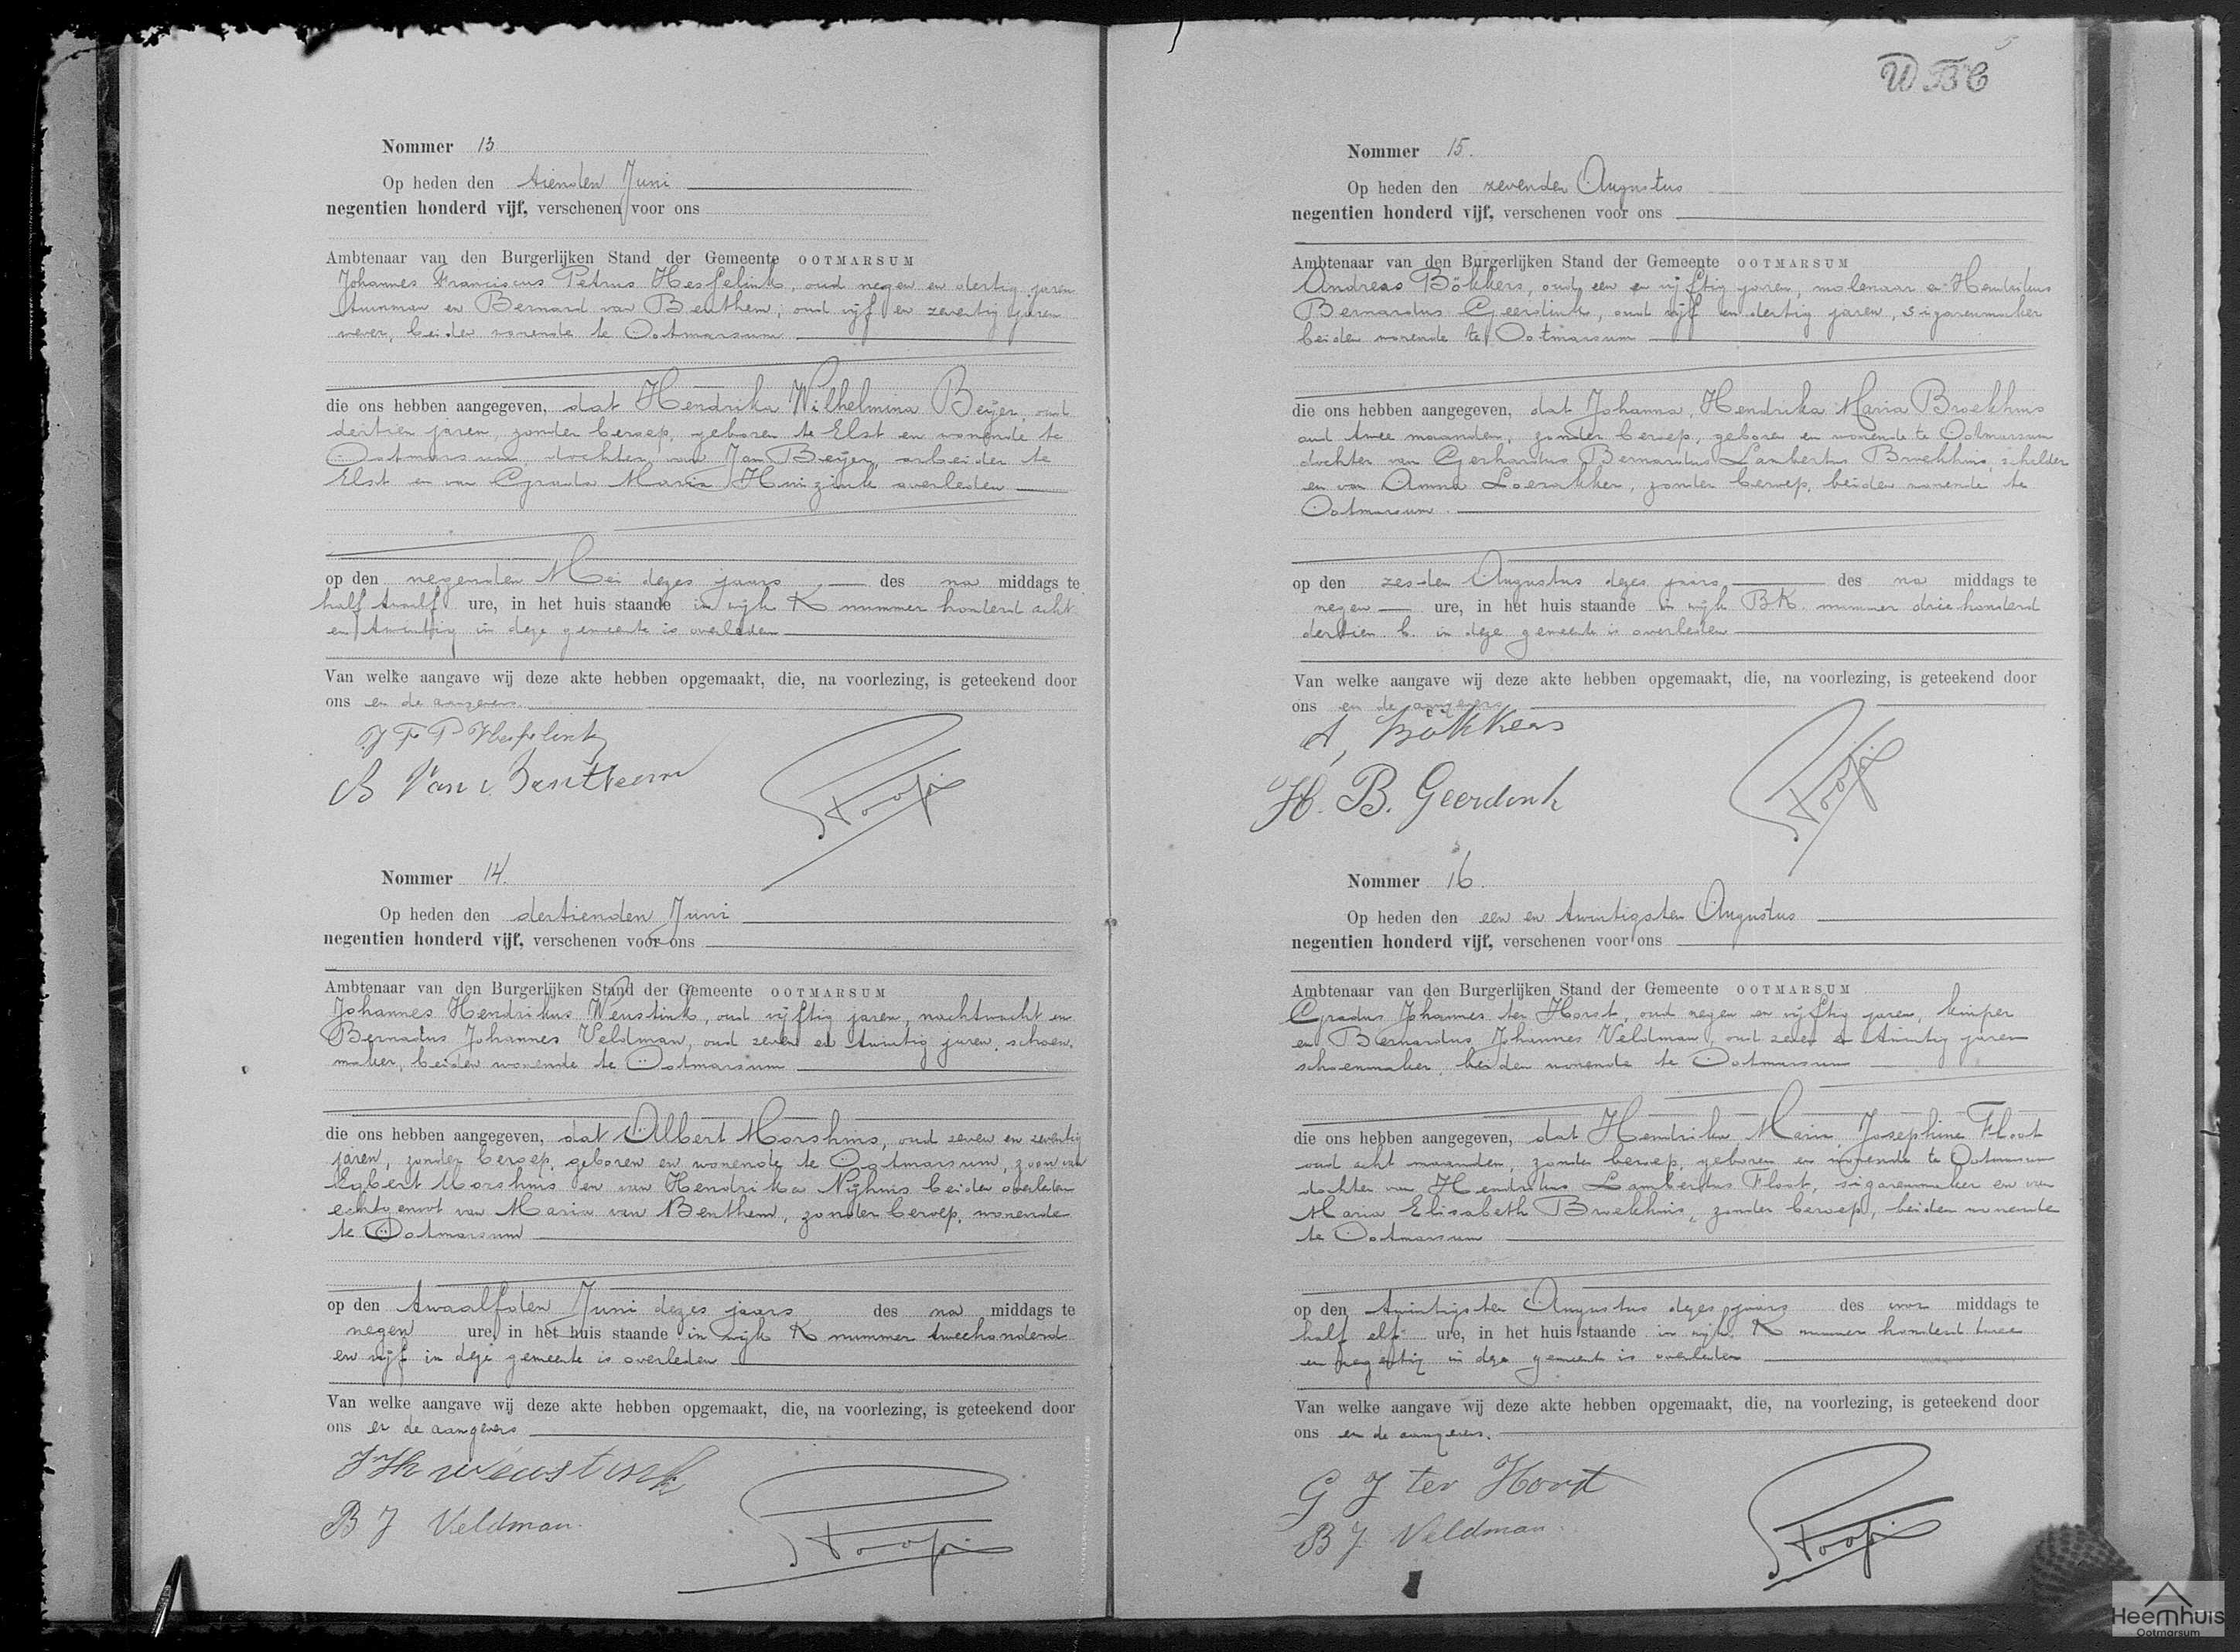 Nommer 13
Op heden den tienden Juni
negentien honderd vijf, verschenen voor ons
Ambtenaar van den Burgerlijken Stand der Gemeente OOTMARSUM
Johannes Franciscus Petrus Hesselink, oud negen en dertig jaren
tuinman en Bernard van Benthem, oud vijf en zeventig jaren
wever, beiden wonende te Ootmarsum
die ons hebben aangegeven, dat Hendrika Wilhelmina Beijer, oud
dertien jaren, zonder beroep, geboren te Elst en wonende te
Ootmarsum, dochter van Jan Beijer, arbeider te
Elst en van Grada Maria Huizink overleden
op den negenden Mei dezes jaars des na middags te
half twaalf ure, in het huis staande in wijk K nummer honderd acht
en twintig in deze gemeente is overleden
Van welke aangave wij deze akte hebben opgemaakt, die, na voorlezing, is geteekend door
ons en de aangevers
J F P Hesselink
B Van Benthem
Nommer 14.
Op heden den dertienden Juni
negentien honderd vijf, verschenen voor ons
Ambtenaar van den Burgerlijken Stand der Gemeente OOTMARSUM
Johannes Hendrikus Weustink, oud vijftig jaren, nachtwacht en
Bernadus Johannes Veldman, oud zeven en twintig jaren, schoen
maker, beiden wonende te Ootmarsum
die ons hebben aangegeven, dat Albert Morshuis, oud zeven en zeventig
jaren, zonder beroep, geboren en wonende te Ootmarsum, zoon van
Egbert Morshuis en van Hendrika Nijhuis beiden overleden
echtgenoot van Maria van Benthem, zonder beroep, wonende
te Ootmarsum
op den twaalfden Juni dezes jaars des na middags te
negen ure, in het huis staande in wijk K nummer tweehonderd
en vijf in deze gemeente is overleden
Van welke aangave wij deze akte hebben opgemaakt, die, na voorlezing, is geteekend door
ons en de aangevers
J H Weustink
B J Veldman.
5
Nommer 15.
Op heden den zevenden Augustus
negentien honderd vijf, verschenen voor ons
Ambtenaar van den Burgerlijken Stand der Gemeente OOTMARSUM
Andreas Bökkers, oud een en vijftig jaren, molenaar en Hendrikus
Bernardus Geerdink, oud vijf en dertig jaren, sigarenmaker
beiden wonende te Ootmarsum
die ons hebben aangegeven, dat Johanna, Hendrika Maria Broekhuis
oud twee maanden, zonder beroep, geboren en wonende te Ootmarsum
dochter van Gerhardus Bernardus Lambertus Broekhuis, schilder
en van Anna Loerakker, zonder beroep, beiden wonende te
Ootmarsum.
op den zesden Augustus dezes jaars des na middags te
negen ure, in het huis staande in wijk BK nummer driehonderd
dertien b. in deze gemeente is overleden
Van welke aangave wij deze akte hebben opgemaakt, die, na voorlezing, is geteekend door
ons en de aangevers
A, Bökkers
H. B. Geerdink
Nommer 16.
Op heden den een en twintigsten Augustus
negentien honderd vijf, verschenen voor ons
Ambtenaar van den Burgerlijken Stand der Gemeente OOTMARSUM
Gradus Johannes ter Horst, oud negen en vijftig jaren, kuiper
en Bernardus Johannes Veldman, oud zeven en twintig jaren
schoenmaker, beiden wonende te Ootmarsum
die ons hebben aangegeven, dat Hendrika Maria Josephina Floot
oud acht maanden, zonder beroep, geboren en wonende te Ootmarsum
dochter van Hendrikus Lambertus Floot, sigarenmaker en van
Maria Elisabeth Broekhuis, zonder beroep, beiden wonende
te Ootmarsum
op den twintigsten Augustus dezes jaars des voor middags te
half elf ure, in het huis staande in wijk K nummer honderd twee
en negentig in deze gemeente is overleden
Van welke aangave wij deze akte hebben opgemaakt, die, na voorlezing, is geteekend door
ons en de aangevers.
G J ter Horst
B J Veldman.
Heemhuis
Ootmarsum